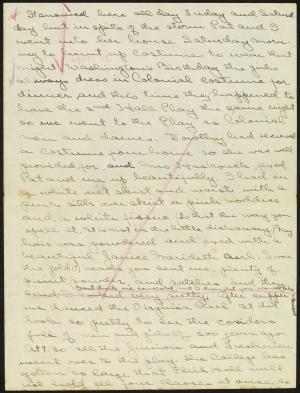 It snowed here all day Friday and Satur
day but in spite of the storm Pat and I
went into her house Saturday morn-
ing to hunt up costumes to wear that
night. Washington's Birthday the girls
always dress in Colonial costume for
dinner and this time they happened to
have the 2nd Hall Play the same night
so we went to the Play as Colonial
men and dames. Dorothy had received
a costume from home so she was well
provided for and Mrs fixed
Pat and me up beautifully. I had on
a white net skirt and waist with a
pink silk over skirt a pink bodice
and a white (is that the way you
spell it, it is not in the little dictionary) My
hair was powdered and fixed with a
beautiful Janice Meredith curl, I wore
the gold beads you sent me, plenty of
paint powder, and patches and they
said I looked very pretty. After supper
we danced the Virginia Reel. It did
look so pretty to see the corridors
full of men and girls of 200 years ago.
At 7.30 all the Juniors and Freshmen
went over to the play. The College has
gotten so large that Phil. Hall will
not hold all four classes at once so